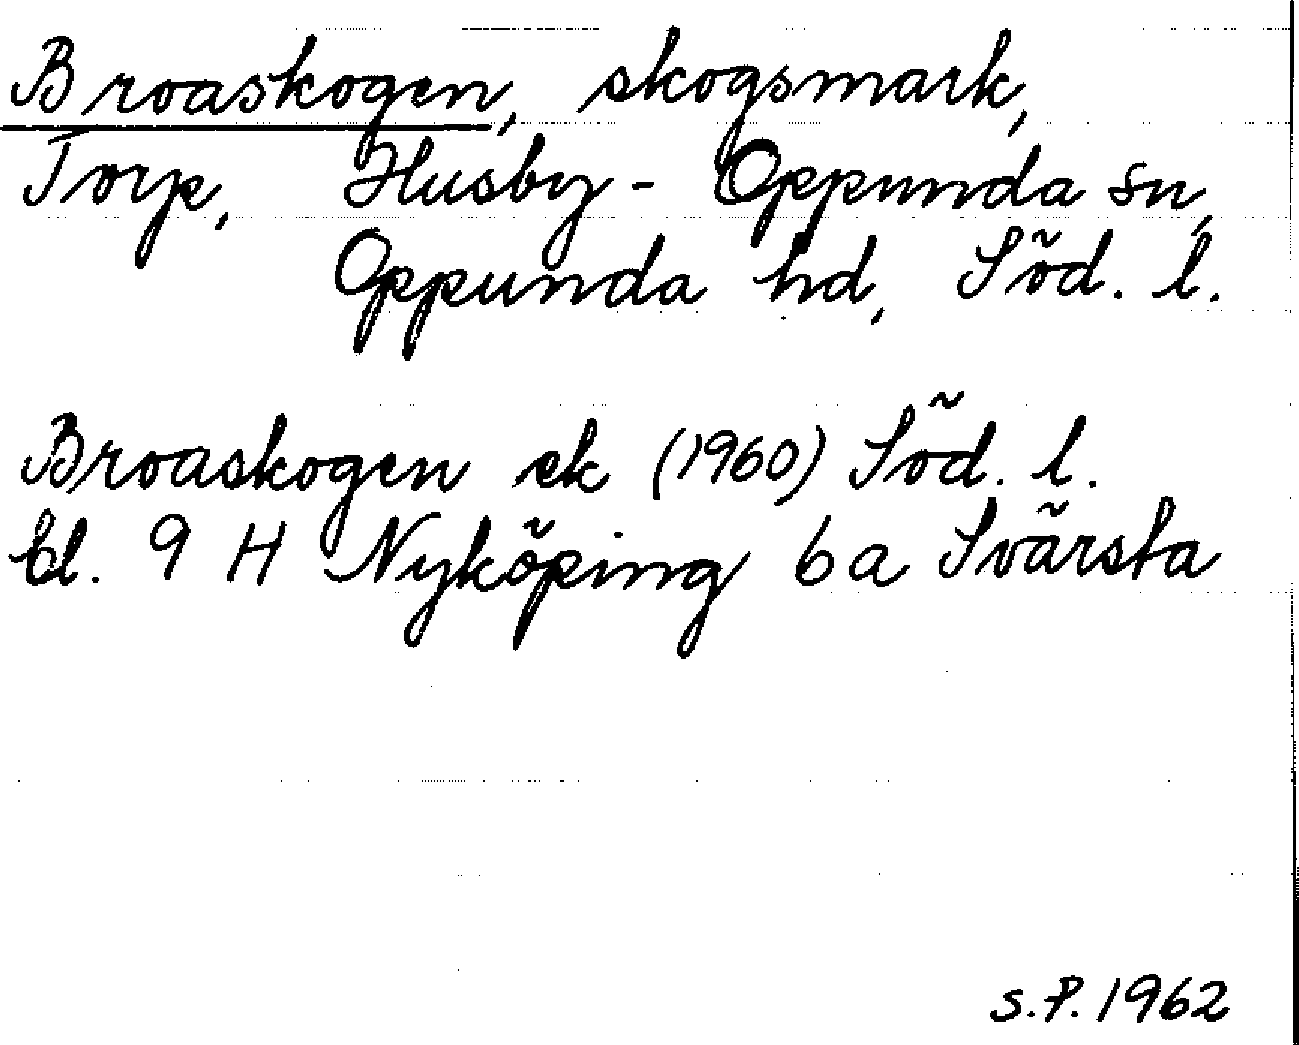 Broaskogen, skogsmark,
Torp, Husby-Oppunda sn,
Oppunda hd, Söd. l.
Broaskogen ek (1960) Söd. l.
bl. 9 H Nyköping 6a Svärsta
S.P. 1962